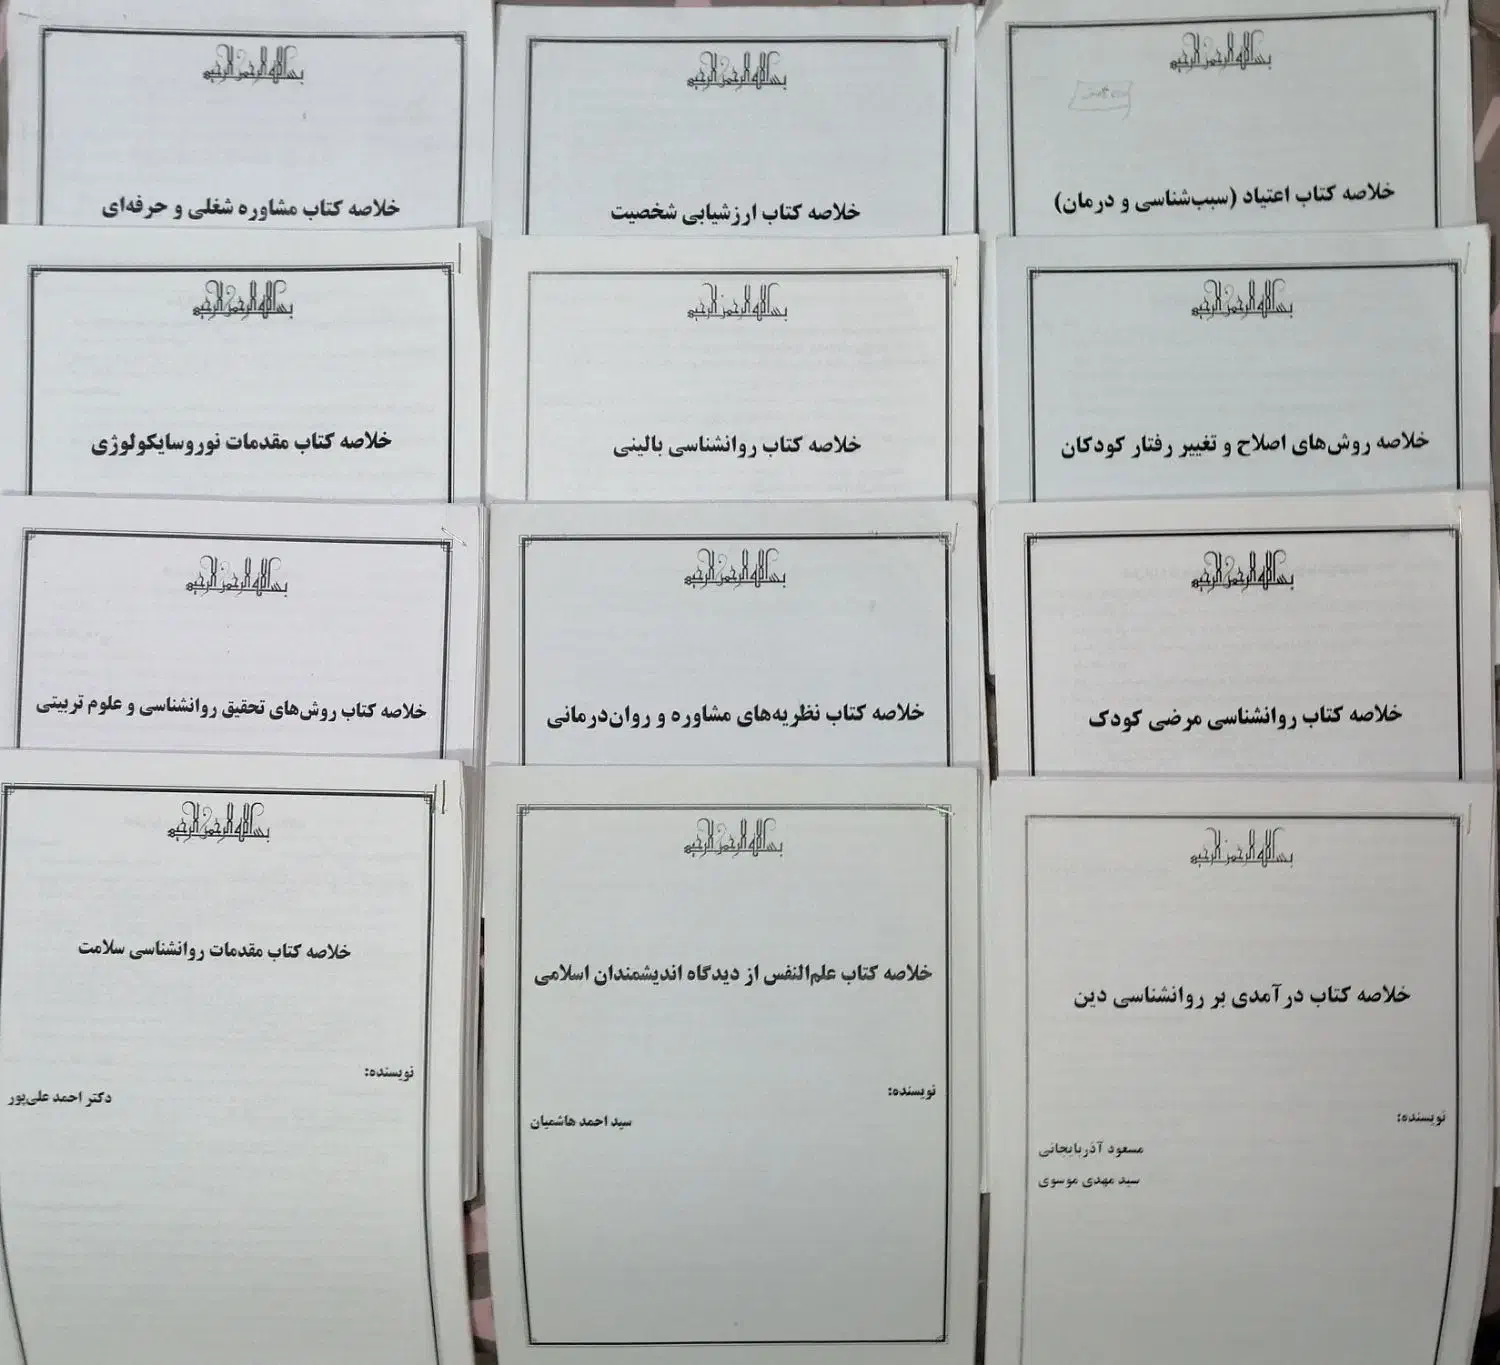 بسم الله الرحمن الرحیم
خلاصه کتاب اعتیاد (سبب‌شناسی و درمان)
بسم الله الرحمن الرحیم
خلاصه کتاب ارزشیابی شخصیت
بسم الله الرحمن الرحیم
خلاصه کتاب مشاوره شغلی و حرفه‌ای
بسم الله الرحمن الرحیم
خلاصه روش‌های اصلاح و تغییر رفتار کودکان
بسم الله الرحمن الرحیم
خلاصه کتاب روانشناسی بالینی
بسم الله الرحمن الرحیم
خلاصه کتاب مقدمات نوروسایکولوژی
بسم الله الرحمن الرحیم
خلاصه کتاب روانشناسی مرضی کودک
بسم الله الرحمن الرحیم
خلاصه کتاب نظریه‌های مشاوره و روان‌درمانی
بسم الله الرحمن الرحیم
خلاصه کتاب روش‌های تحقیق روانشناسی و علوم تربیتی
بسم الله الرحمن الرحیم
خلاصه کتاب درآمدی بر روانشناسی دین
نویسنده:
مسعود آذربایجانی
سید مهدی موسوی
بسم الله الرحمن الرحیم
خلاصه کتاب علم‌النفس از دیدگاه اندیشمندان اسلامی
نویسنده:
سید احمد هاشمیان
بسم الله الرحمن الرحیم
خلاصه کتاب مقدمات روانشناسی سلامت
نویسنده:
دکتر احمد علی‌پور